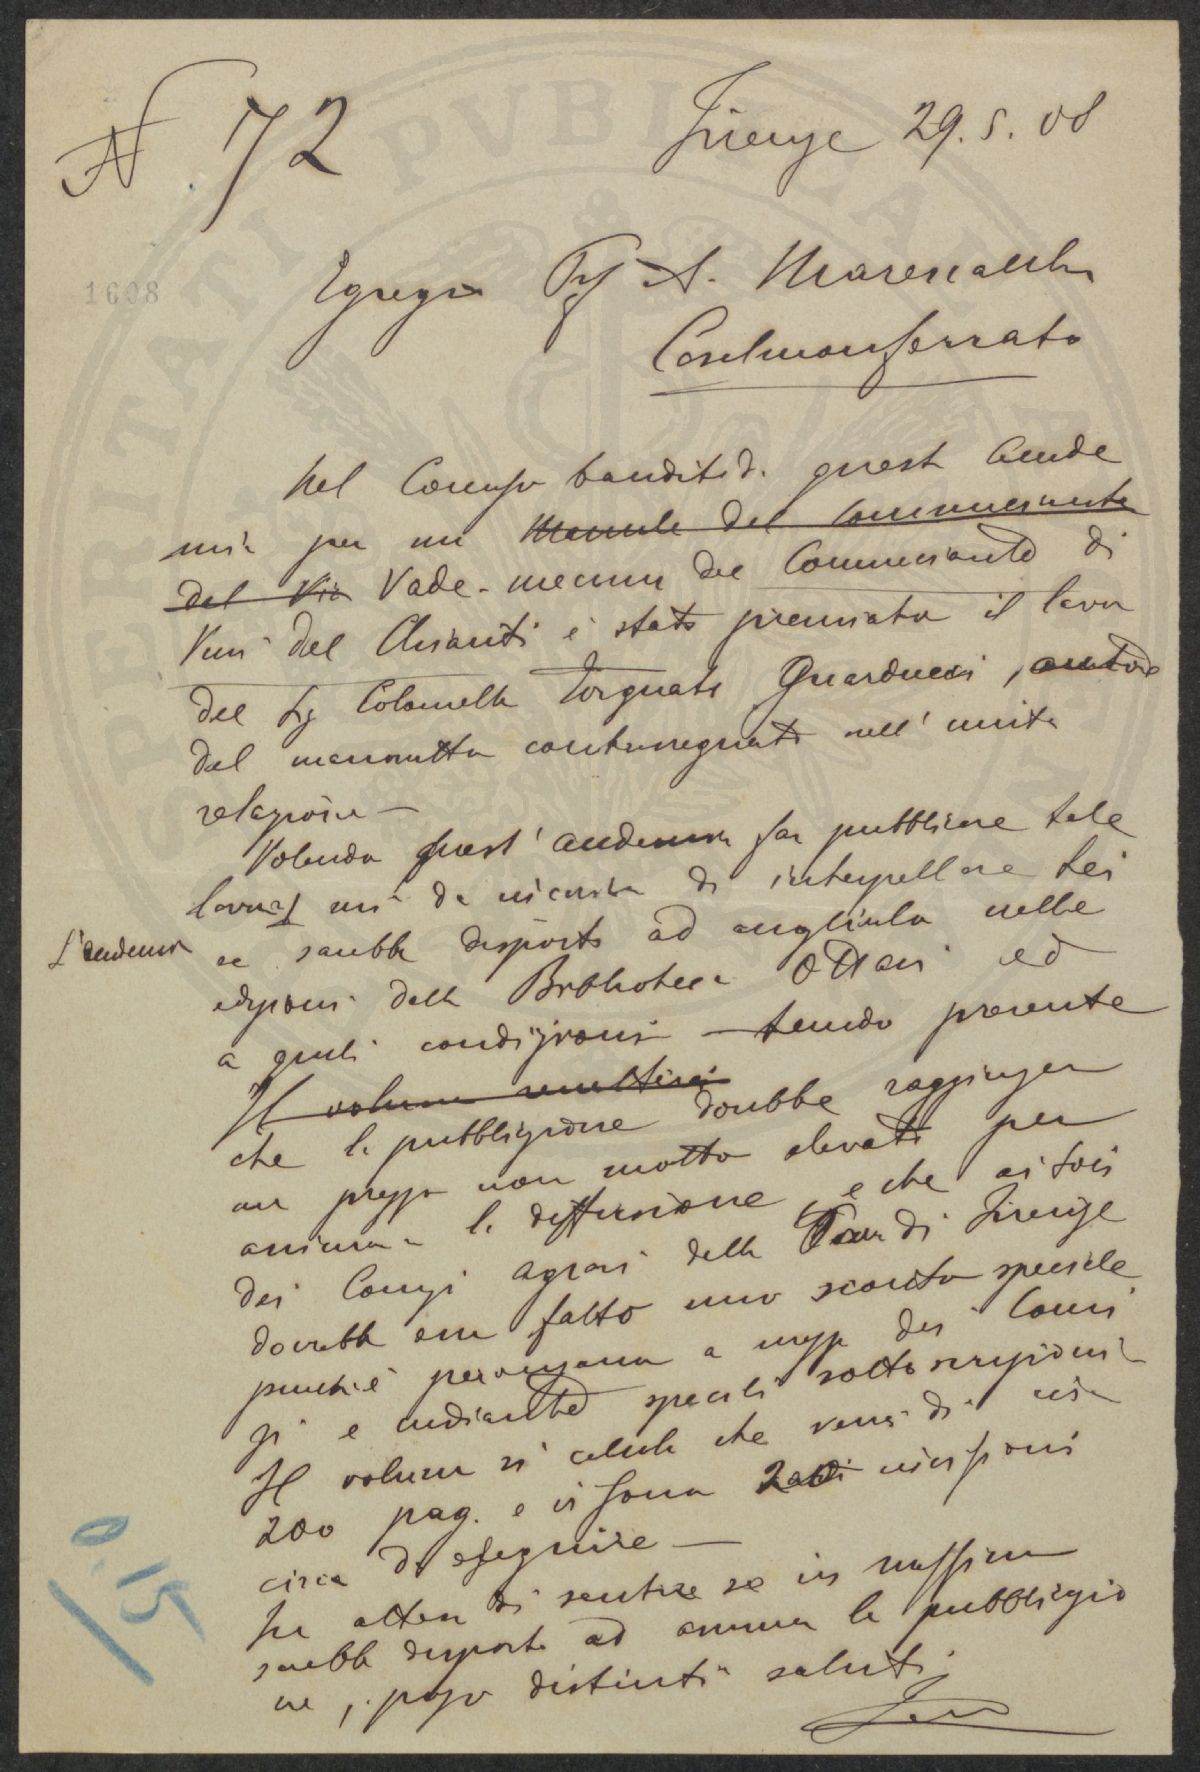 N. 72
Firenze 29.5.08
1608
Egregio Prof A. Marescalchi
Casalmonferrato
Nel Concorso bandito da quest' Accade
mia per un Manuale del Commerciante
del Vin Vade-mecum del Commerciante di
Vini del Chianti è stato premiato il lavoro
del Sig Colonnello Torquato Guarducci, autore
del manoscritto contrassegnato nell' unita
relazione —
Volendo quest' accademia far pubblicare tale
lavoro mi dà incarico di interpellare Lei
L'accademia
se sarebbe disposto ad accoglierlo nelle
edizioni della Biblioteca Ottavi ed
a quali condizioni — tenendo presente
Il volume
che la pubblicazione dovrebbe raggiungere
un prezzo non molto elevato per
assicurare la diffusione e che ai soci
dei Comizi agrari della Prov di Firenze
dovrebbe esser fatto uno sconto speciale
purchè pervengano a mezzo dei Comi
zi e mediante speciali sottoscrizioni
Il volume si calcola che venga di circa
200 pag. e vi sono 20 incisioni
circa da eseguire —
In attesa di sentire se in massima
sarebbe disposto ad assumere la pubblicazio
ne, porgo distinti saluti
0.15